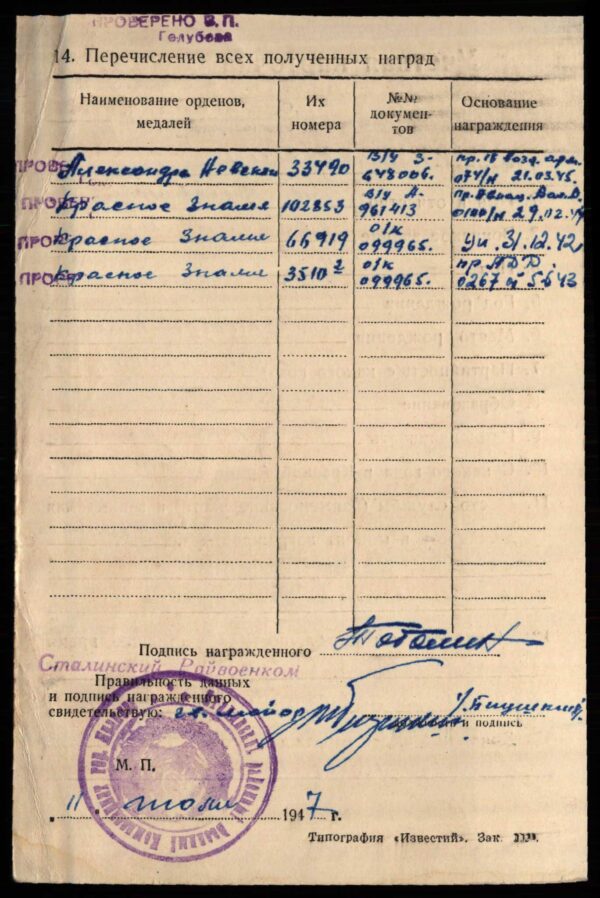 ПРОВЕРЕНО В.П.
Голубева
14. Перечисление всех полученных наград
Наименование орденов, медалей
Их номера
№№ докумен-тов
Основание награждения
ПРОВЕ Александра Невского 33490 В/ч З- 648006. пр. 18 возд. арм. 074/н 21.03.45.
ПРОВЕР Красное Знамя 102853 В/ч А- 961413 29.12.4
ПРОВ Красное Знамя 66919 О/к 099965. Ук. 31.12.42
ПРОВЕ Красное Знамя 3510² О/к 099965. пр. АДД. 0267 5.6.43
Подпись награжденного
Сталинский Райвоенком
Правильность данных
и подпись награжденного
свидетельствую: майор
и подпись
М. П.
11 июля 1947 г.
Типография «Известий». Зак.